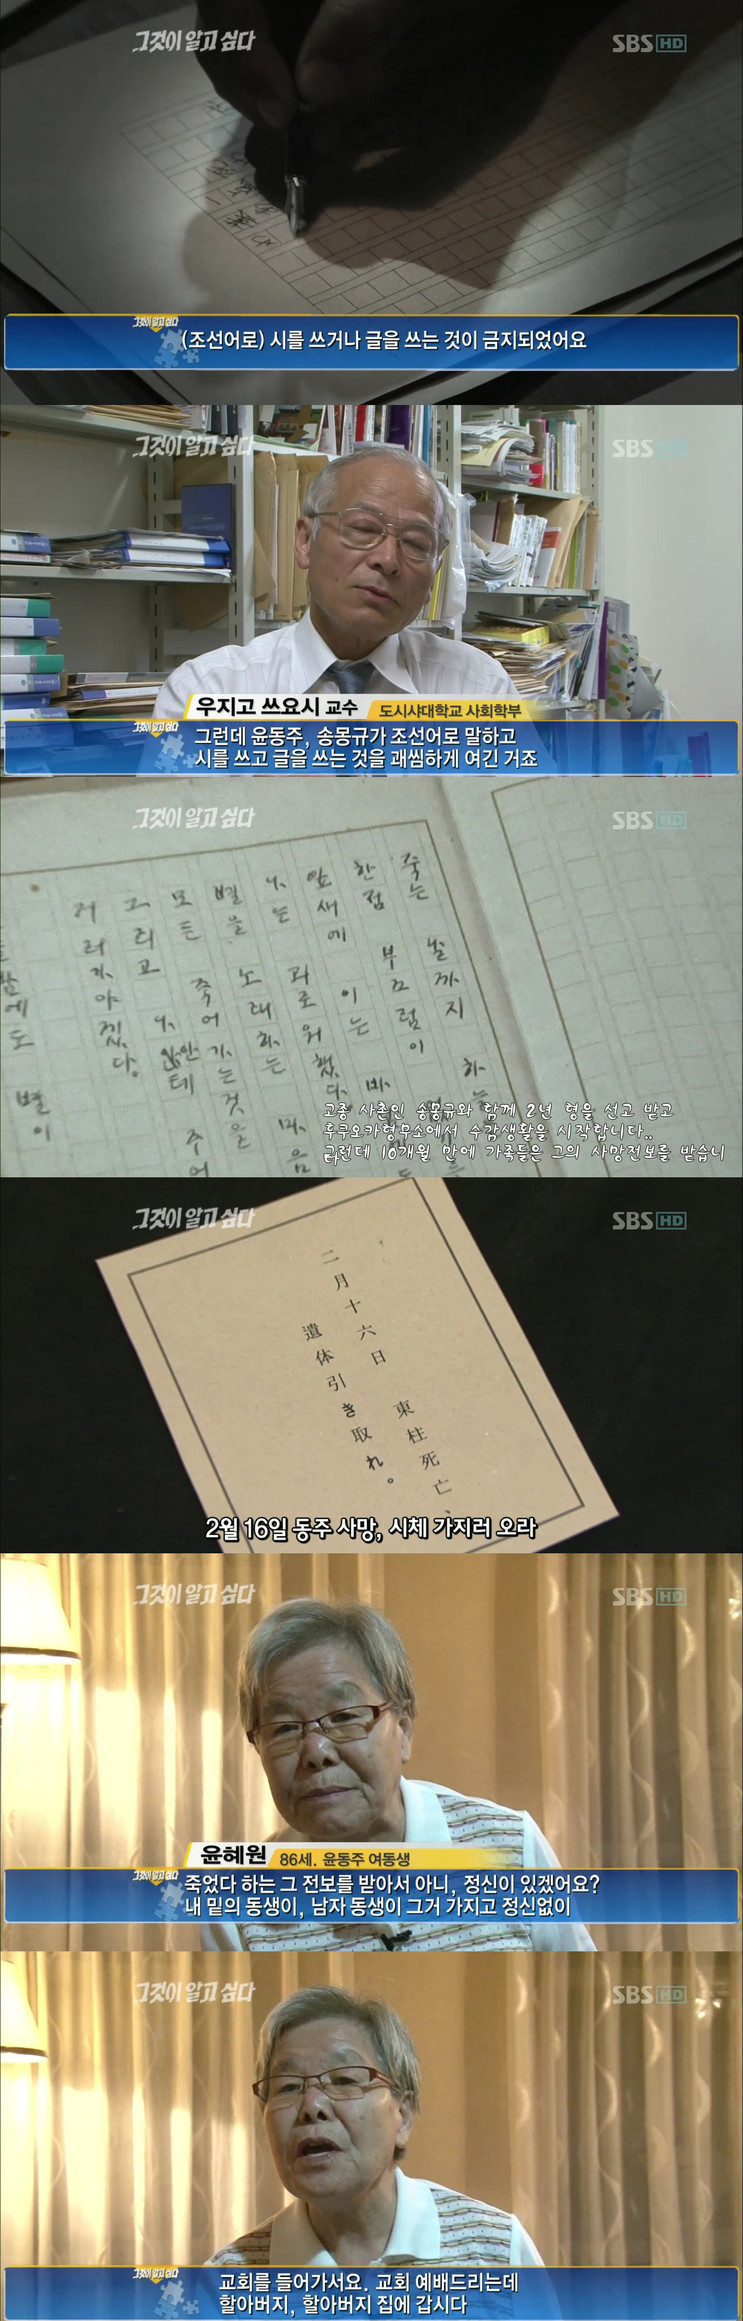 그것이 알고 싶다
SBS HD
그것이 알고 싶다
(조선어로) 시를 쓰거나 글을 쓰는 것이 금지되었어요
그것이 알고 싶다
SBS HD
우지고 쓰요시 교수 도시샤대학교 사회학부
그것이 알고 싶다
그런데 윤동주, 송몽규가 조선어로 말하고
시를 쓰고 글을 쓰는 것을 괘씸하게 여긴 거죠
그것이 알고 싶다
SBS HD
죽는 날까지 하늘
한점 부끄럼이
잎새에 이는 바
나는 괴로워했다.
별을 노래하는 마음
모든 죽어가는것을
그리고 나안테 주어
거러가야겠다.
별이
고종 사촌인 송몽규와 함께 2년 형을 선고 받고
후쿠오카형무소에서 수감생활을 시작합니다..
그런데 10개월 만에 가족들은 그의 사망전보를 받습니
그것이 알고 싶다
SBS HD
二月十六日 東柱死亡、
遺体引き取れ。
2월 16일 동주 사망, 시체 가지러 오라
그것이 알고 싶다
SBS HD
윤혜원 86세. 윤동주 여동생
그것이 알고 싶다
죽었다 하는 그 전보를 받아서 아니, 정신이 있겠어요?
내 밑의 동생이, 남자 동생이 그거 가지고 정신없이
그것이 알고 싶다
SBS HD
그것이 알고 싶다
교회를 들어가서요. 교회 예배드리는데
할아버지, 할아버지 집에 갑시다